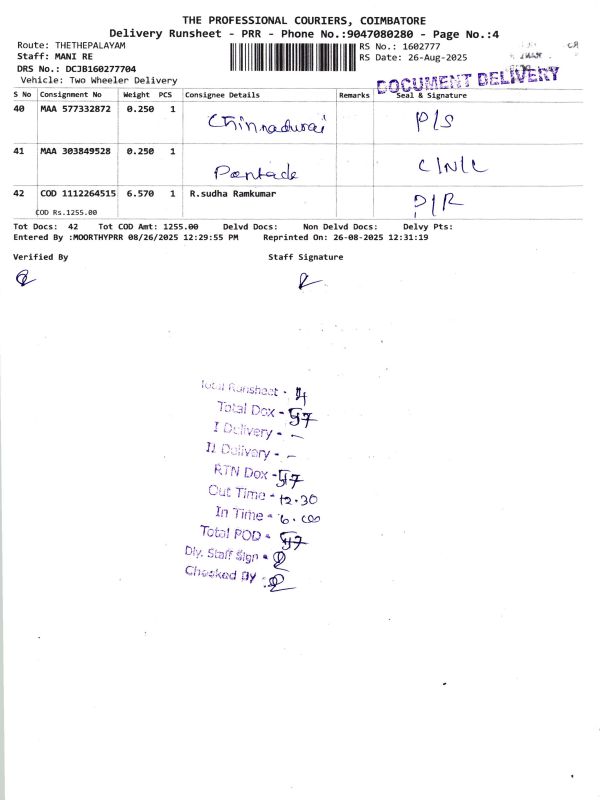 THE PROFESSIONAL COURIERS, COIMBATORE
Delivery Runsheet - PRR - Phone No.:9047080280 - Page No.:4
Route: THETHEPALAYAM RS No.: 1602777
Staff: MANI RE RS Date: 26-Aug-2025
DRS No.: DCJB160277704
Vehicle: Two Wheeler Delivery
DOCUMENT DELIVERY
S No Consignment No Weight PCS Consignee Details Remarks Seal & Signature
40 MAA 577332872 0.250 1 Chinnadurai P/S
41 MAA 303849528 0.250 1 C/N/L
42 COD 1112264515 6.570 1 R.sudha Ramkumar P/R
COD Rs.1255.00
Tot Docs: 42 Tot COD Amt: 1255.00 Delvd Docs: Non Delvd Docs: Delvy Pts:
Entered By :MOORTHYPRR 08/26/2025 12:29:55 PM Reprinted On: 26-08-2025 12:31:19
Verified By Staff Signature
Total Runsheet - 4
Total Dox -
I Delivery - -
II Delivery - -
RTN Dox -
Out Time - 12.30
In Time - 6.00
Total POD -
Dly. Staff Sign -
Checked By :